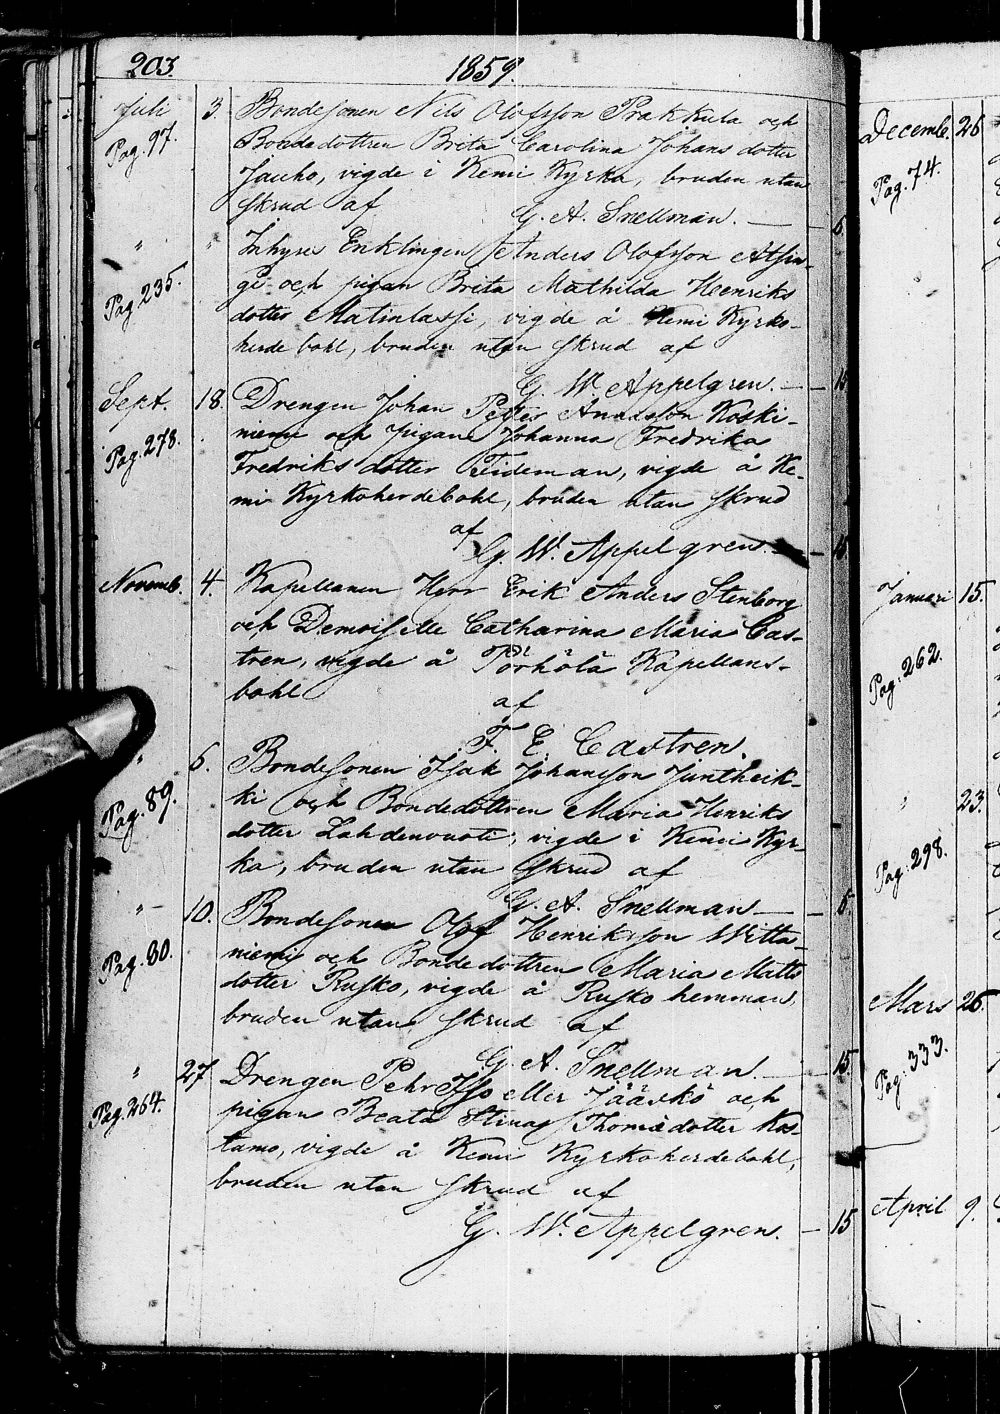 203. 1859.
Juli 3. Bondesonen Nils Olofsson Prakkula och
Pag. 97. Bondedottren Brita Carolina Johans dotter
Jauho, vigde i Kemi Kyrka, bruden utan
skrud af G. A. Snellman. — 6
" " Inhyses Enklingen Anders Olofsson Atsin-
Pag. 235. gi och pigan Brita Mathilda Henriks
dotter Matinlassi, vigde å Kemi Kyrko-
herde bohl, bruden utan skrud af
G. W. Appelgren. — 15
Sept. 18. Drengen Johan Petter Andersson Koski-
Pag. 278. niemi och pigan Johanna Fredrika
Fredriks dotter Tideman, vigde å Ke-
mi Kyrkoherdebohl, bruden utan skrud
af
G. W. Appelgren. — 15
Novemb. 4. Kapellanen Herr Erik Anders Stenborg
och Demoiselle Catharina Maria Cas-
tren, vigde å Törhölä Kapellans-
bohl af
F. E. Castren.
" 6. Bondesonen Isak Johansson Juntheik-
Pag. 89. ki och Bondedottren Maria Henriks
dotter Lahdenvuoti, vigde i Kemi Kyr-
ka, bruden utan skrud af
G. A. Snellman — 6
" 10. Bondesonen Olof Henriksson Witta-
Pag. 80. niemi och Bondedottren Maria Matts
dotter Rusko, vigde å Rusko hemman,
bruden utan skrud af
G. A. Snellman. — 15
" 27. Drengen Pehr Isso eller Jääskö och
Pag. 264. pigan Beata Stina Thomædotter Kos-
tamo, vigde å Kemi Kyrkoherdebohl,
bruden utan skrud af
G. W. Appelgren. — 15
Decemb. 26
Pag. 74.
Januari 15.
Pag. 262.
" 23.
Pag. 298.
Mars 26.
Pag. 333.
April 9.